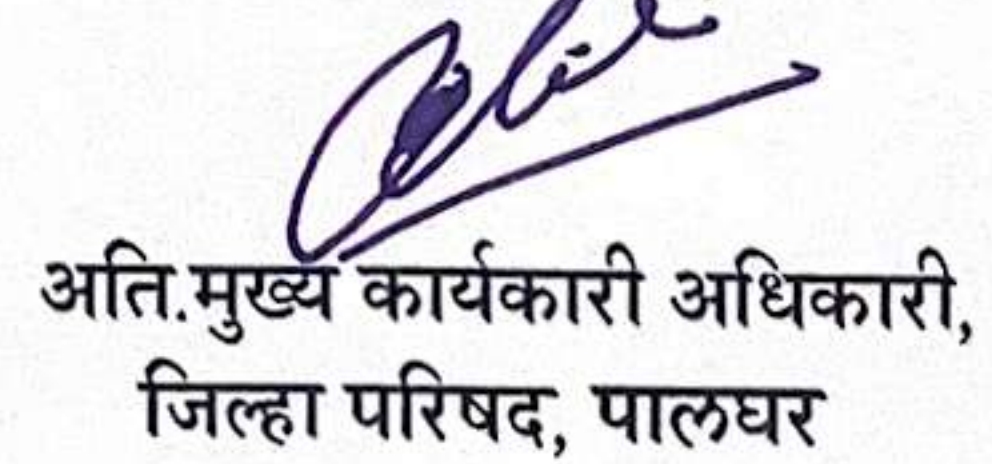 अति.मुख्य कार्यकारी अधिकारी,
जिल्हा परिषद, पालघर